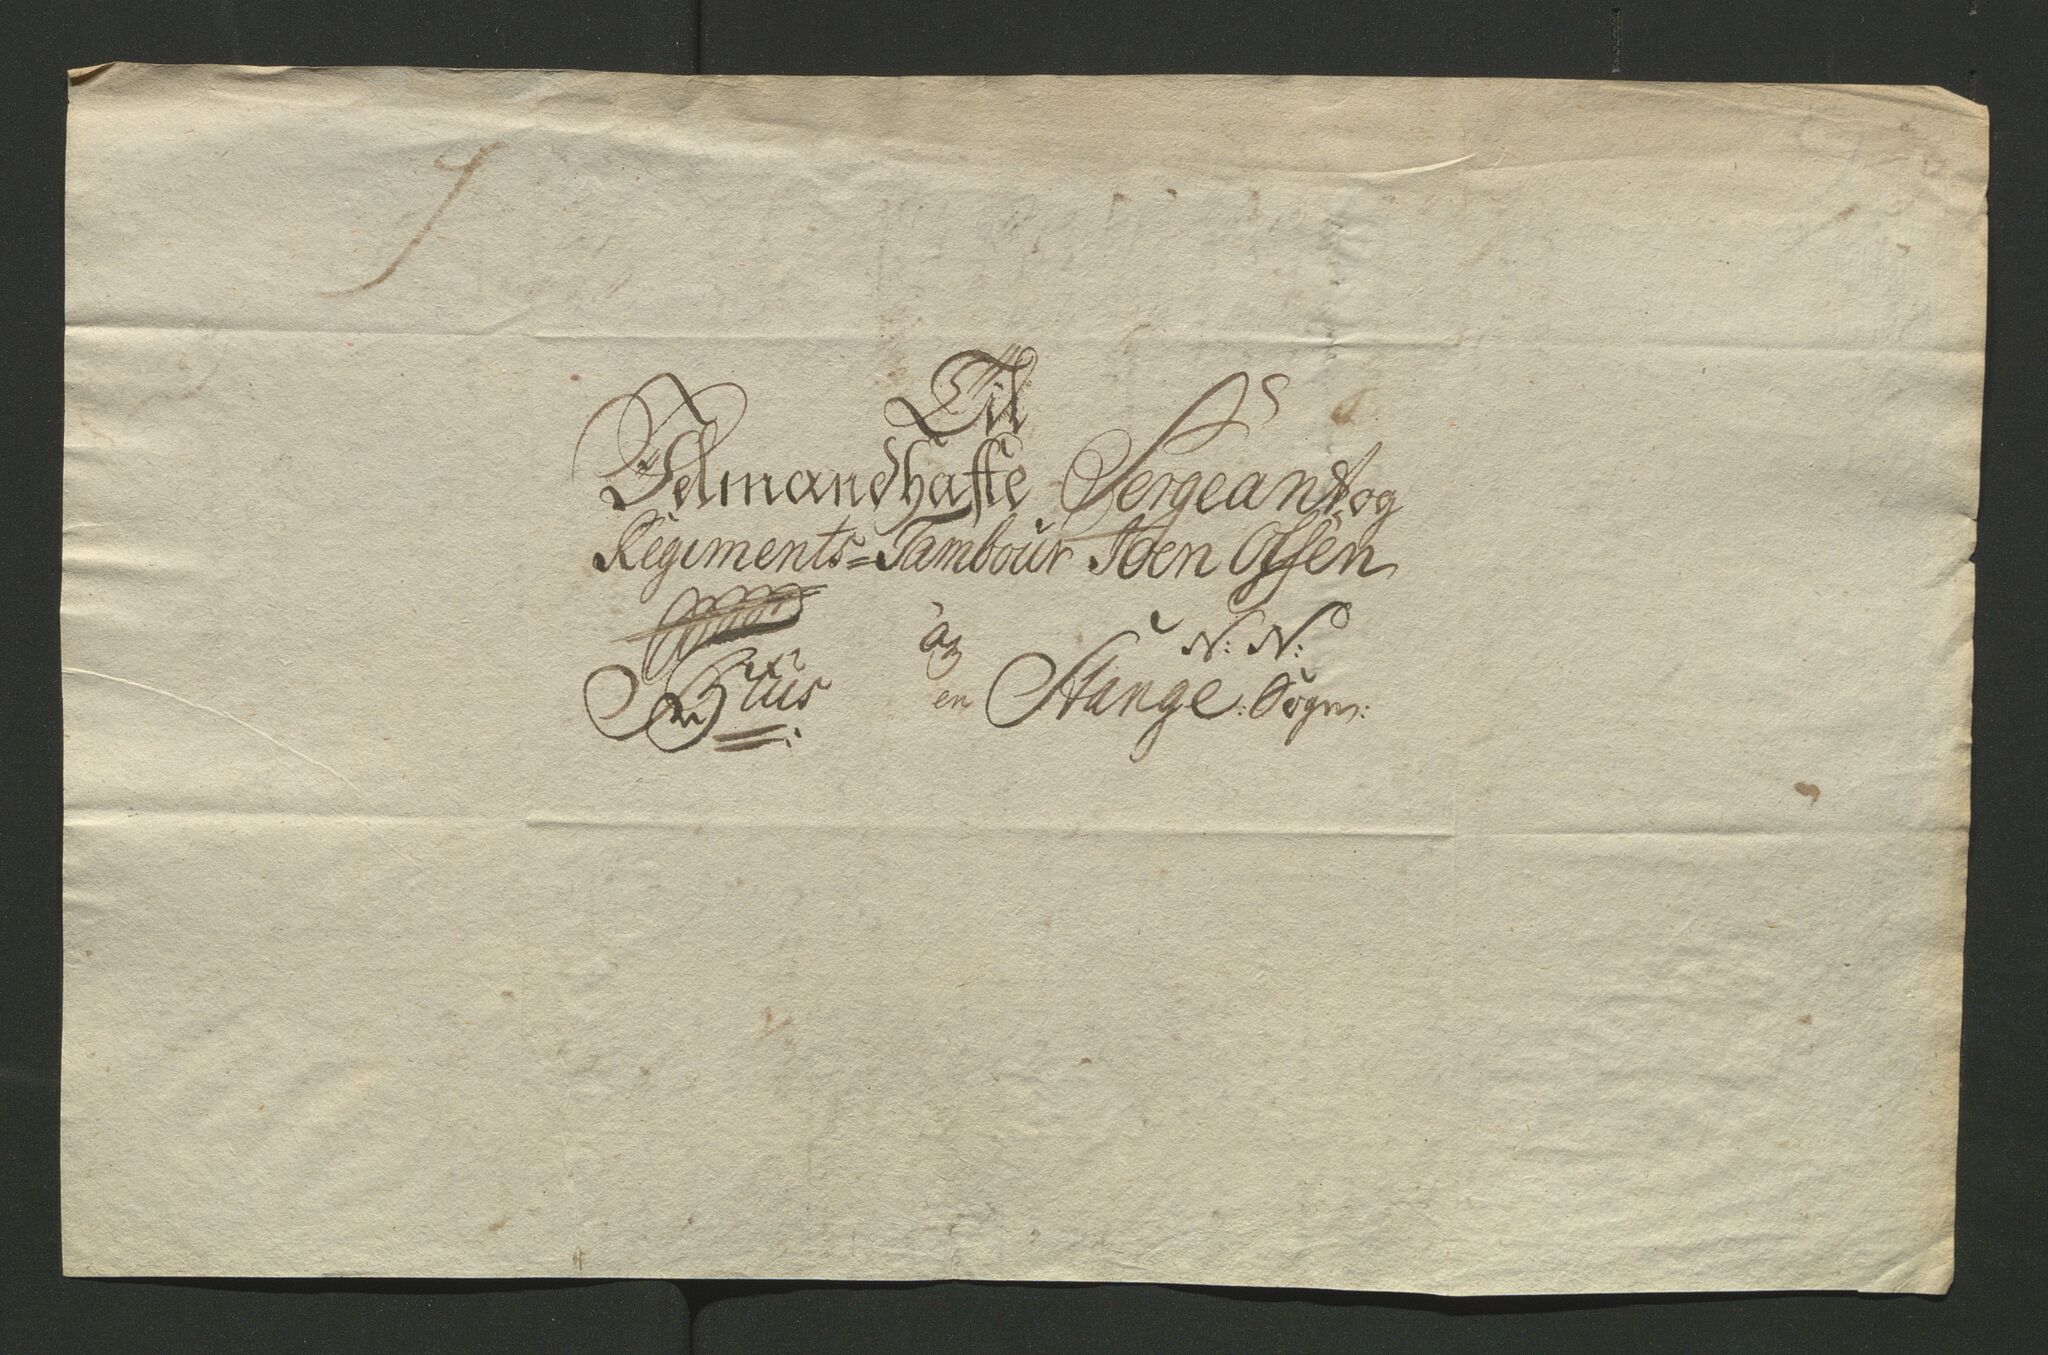 Til
Velmandhafte Sergeant og
Regiments=Tambour Iven Olsen
a N: N:
Huus en Stange: Sogn: